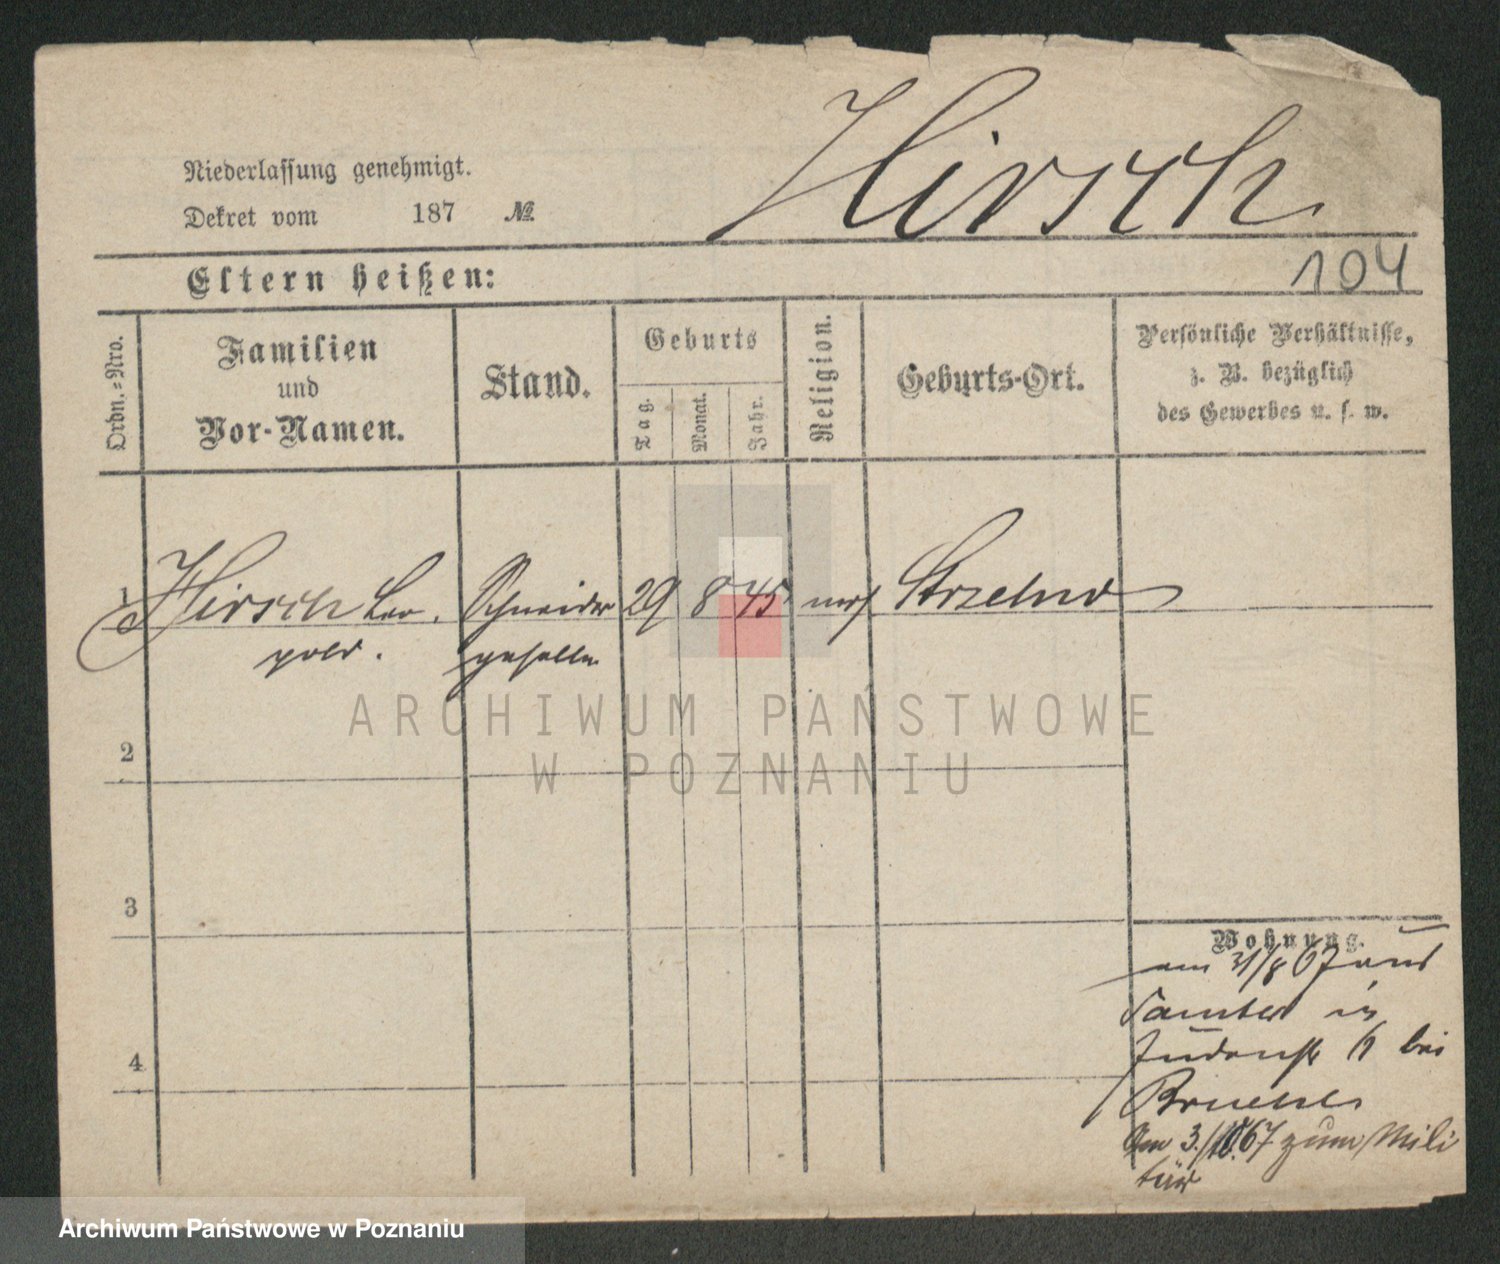 Hirsch
Niederlassung genehmigt.
Dekret vom 187 №
104
Eltern heißen:
Ordn.-Nro.
Familien
und
Vor-Namen.
Stand.
Geburts
Tag.
Monat.
Jahr.
Religion.
Geburts-Ort.
Persönliche Verhältnisse,
z. B. bezüglich
des Gewerbes u. s. w.
1 Hirsch Leo- Schneider 29 8 45 mos. Strzelno
pold. geselle
ARCHIWUM PAŃSTWOWE
W POZNANIU
2
3
4
Wohnung.
am 31/8 67 aus
Samter in
Judenstr bei
Am 3./10.67 zum Mili
tär
Archiwum Państwowe w Poznaniu